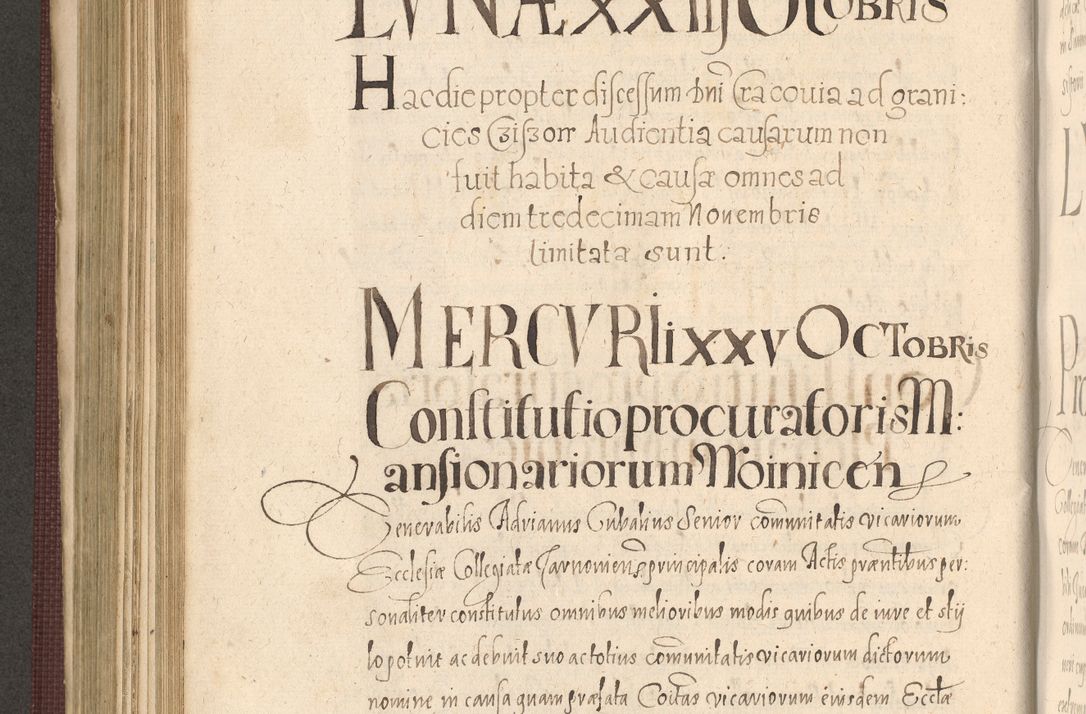 LVNÆ XXIIJ OCTOBRIS
Hac die propter discessum Dni Cracouia ad grani:
cies Audientia causarum non
fuit habita & causæ omnes ad
diem tredecimam Nouembris
limitatæ sunt.
MERCVRIi XXV OCTOBRIS
Constitutio procuratoris M:
ansionariorum Woinicen
Venerabilis Adrianus Cubalius Senior comunitatis vicariorum
Ecclesiæ Collegiatæ Tarnouien principalis coram Actis præntibus per:
sonaliter constitutus omnibus melioribus modis quibus de iure et stÿ
lo potuit ac debuit suo ac totius comunitatis vicariorum dictorum
nomine in causa quam præfata Coitas vicariorum eiusdem Ecclæ